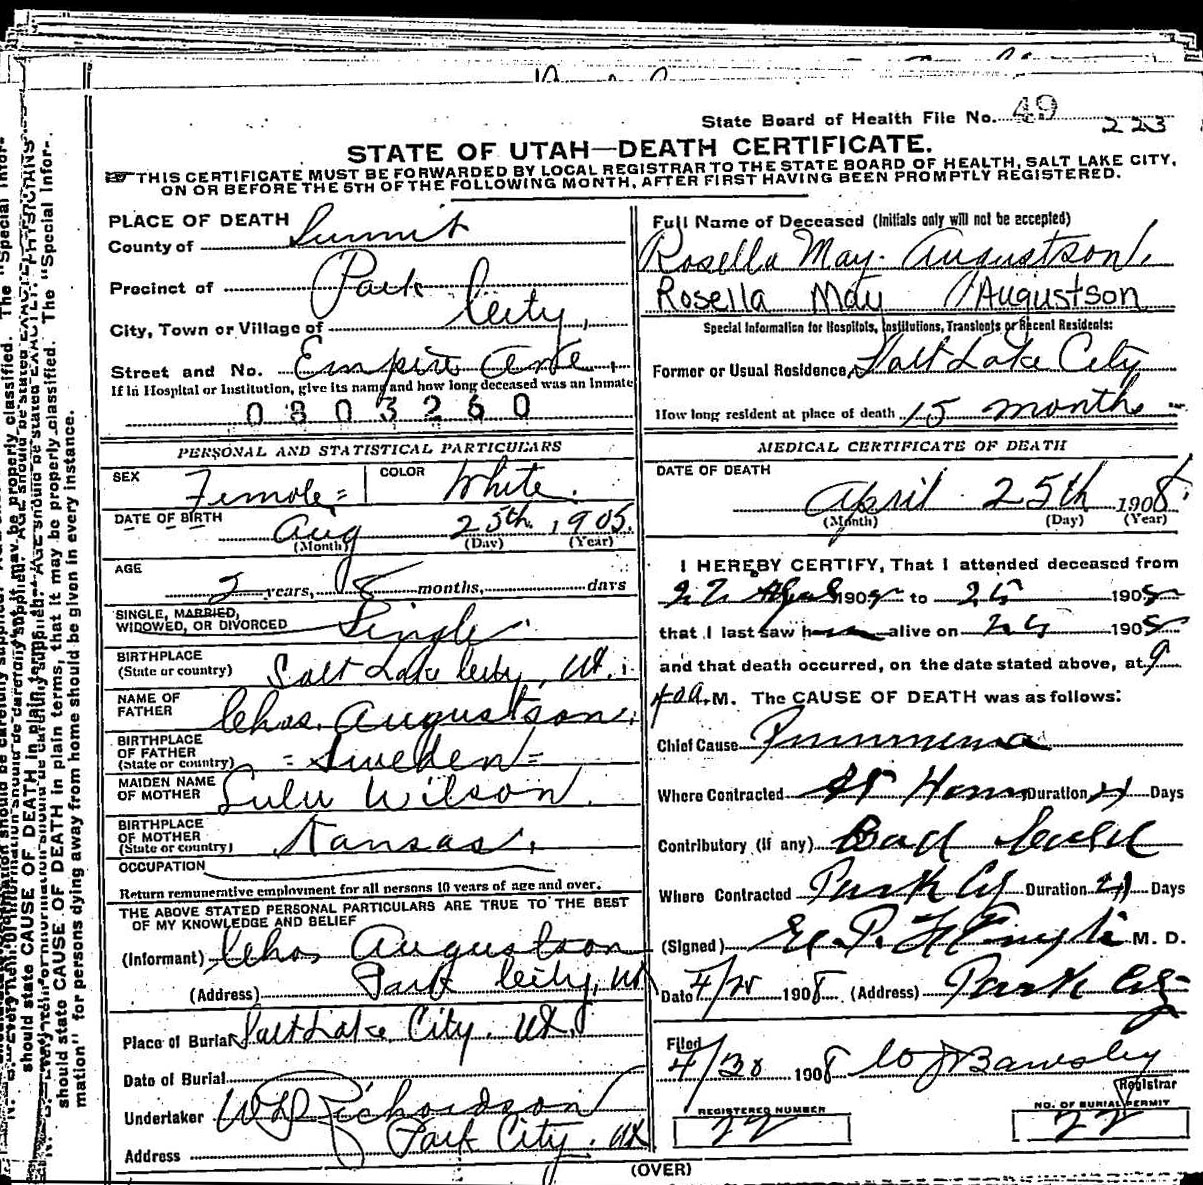 State Board of Health File No. 49
223
STATE OF UTAH—DEATH CERTIFICATE.
THIS CERTIFICATE MUST BE FORWARDED BY LOCAL REGISTRAR TO THE STATE BOARD OF HEALTH, SALT LAKE CITY,
ON OR BEFORE THE 5TH OF THE FOLLOWING MONTH, AFTER FIRST HAVING BEEN PROMPTLY REGISTERED.
PLACE OF DEATH
County of Summit
Precinct of Park
City, Town or Village of City,
Street and No. Empire
If in Hospital or Institution, give its name and how long deceased was an Inmate
0803260
PERSONAL AND STATISTICAL PARTICULARS
SEX Female COLOR White.
DATE OF BIRTH Aug 25th, 1905.
(Month) (Day) (Year)
AGE 2 years, 8 months, days
SINGLE, MARRIED,
WIDOWED, OR DIVORCED Single
BIRTHPLACE
(State or country) Salt Lake City, Ut.
NAME OF
FATHER Chas. Augustson.
BIRTHPLACE
OF FATHER
(State or country) = Sweden =
MAIDEN NAME
OF MOTHER Lulu Wilson.
BIRTHPLACE
OF MOTHER
(State or country) Kansas.
OCCUPATION
Return remunerative employment for all persons 10 years of age and over.
THE ABOVE STATED PERSONAL PARTICULARS ARE TRUE TO THE BEST
OF MY KNOWLEDGE AND BELIEF
(Informant) Chas Augustson
(Address) Park City, Ut
Place of Burial Salt Lake City. Ut.
Date of Burial
Undertaker W D Richardson
Address Park City. Ut
Full Name of Deceased (Initials only will not be accepted)
Rosella May Augustson.
Rosella May Augustson
Special Information for Hospitals, Institutions, Transients or Recent Residents:
Former or Usual Residence, Salt Lake City
How long resident at place of death 15 months
MEDICAL CERTIFICATE OF DEATH
DATE OF DEATH
April 25th 1908.
(Month) (Day) (Year)
I HEREBY CERTIFY, That I attended deceased from
190 to 25 190
that I last saw h alive on 190
and that death occurred, on the date stated above, at 9
M. The CAUSE OF DEATH was as follows:
Chief Cause Pneumonia
Where Contracted At Home Duration 4 Days
Contributory (if any) Bad Cold
Where Contracted Park Cy Duration Days
(Signed) M. D.
Date 4/25 1908 (Address) Park City
Filed
4/30 1908
Registrar
REGISTERED NUMBER
22
NO. OF BURIAL PERMIT
22
(OVER)
should state CAUSE OF DEATH in plain terms, that it may be properly classified. The "Special Infor-
mation" for persons dying away from home should be given in every instance.